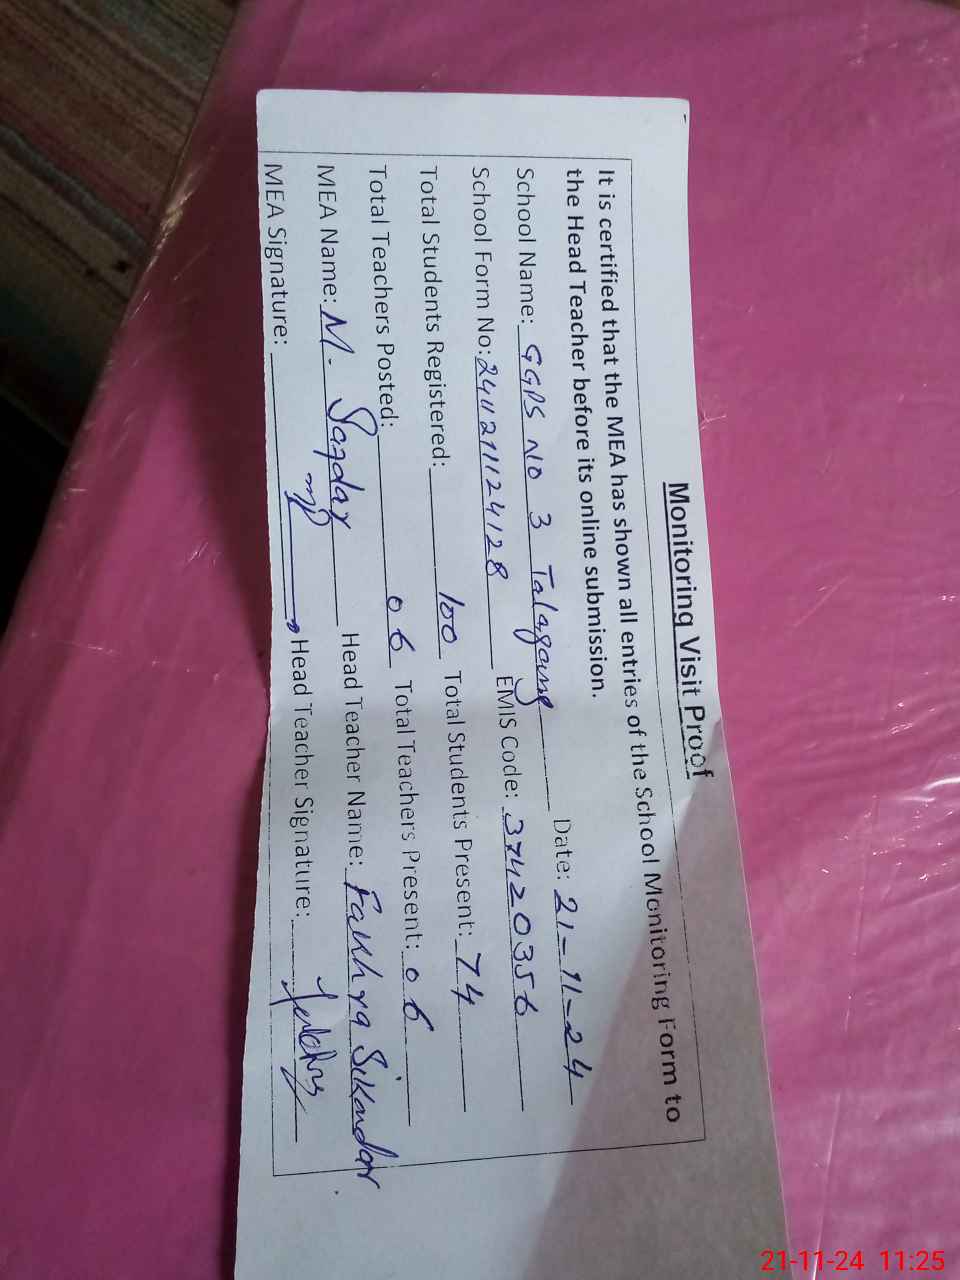 Monitoring Visit Proof
It is certified that the MEA has shown all entries of the School Monitoring Form to
the Head Teacher before its online submission.
School Name: GGPS NO 3 Talagang Date: 21-11-24
School Form No: 2411211124128 EMIS Code: 37420356
Total Students Registered: 100 Total Students Present: 74
Total Teachers Posted: 06 Total Teachers Present: 06
MEA Name: M. Safdar Head Teacher Name: Fakhra Sikandar
MEA Signature: Head Teacher Signature:
21-11-24 11:25